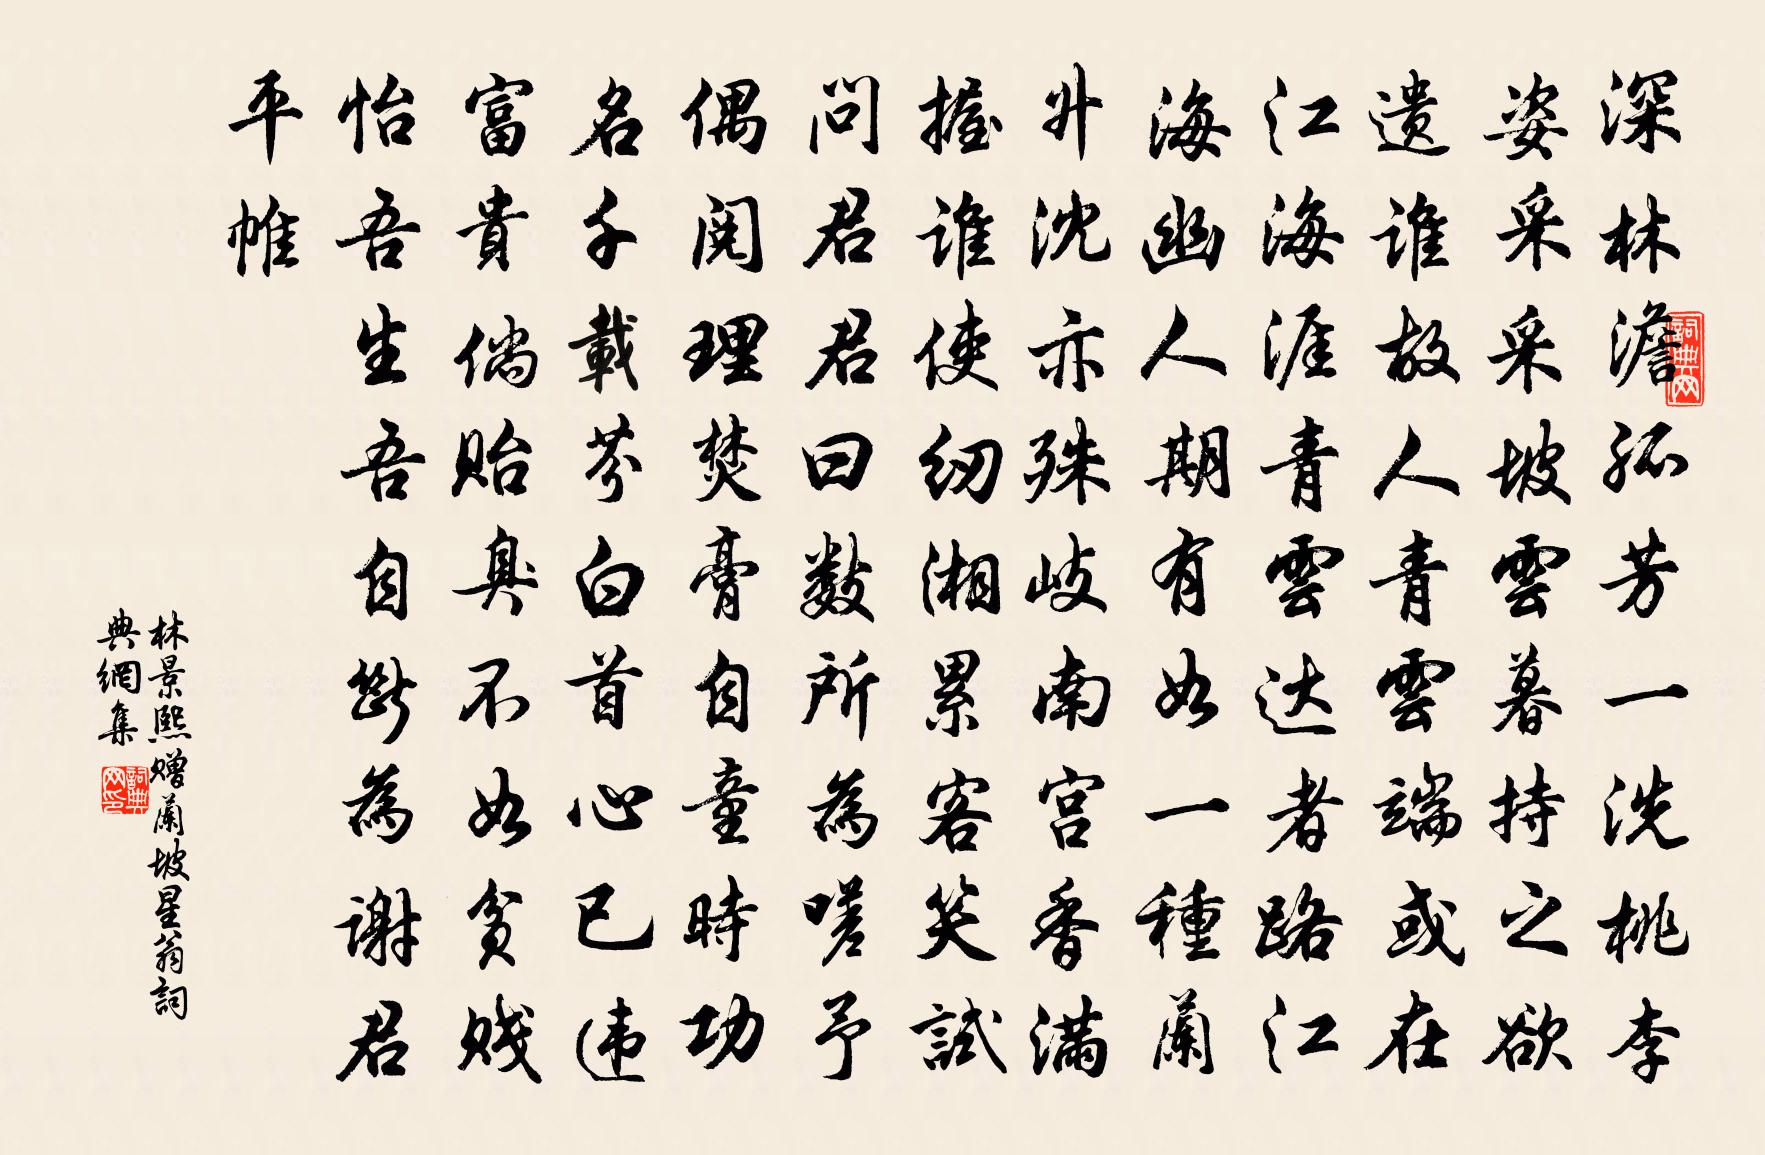 深林澹孤芳一洗桃李
姿采采坡雲暮持之欲
遗谁故人青雲端或在
江海涯青雲达者路江
海幽人期有如一種蘭
升沈亦殊岐南宫香满
握谁使纫湘累客笑試
问君君曰數所為嗟予
偶阅理焚膏自童時功
名千載芬白首心已违
富貴倘贻臭不如贫贱
怡吾生吾自斷為谢君
平帷
林景熙赠蘭坡星翁詞
典網集
詞典网
詞典网印